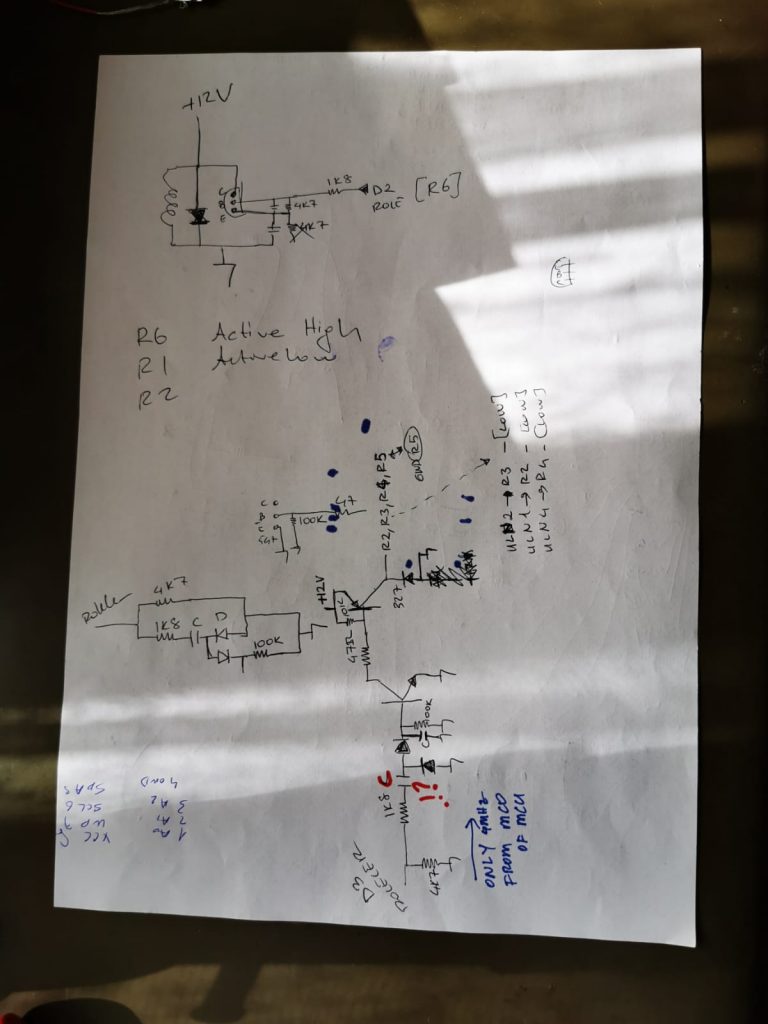 +12V
C
B
E
4K7
4K7
1K8
D2
ROLE
[R6]
R6 Active High
R1 Active low
R2
C
100K
47
R2, R3, R4, R5
GND R5
ULN2 → R3 - [LOW]
ULN1 → R2 - [LOW]
ULN4 → R4 - [LOW]
4K7
1K8
C
D
100K
+12V
10K
47Ω
327
100K
C
1K8
C
!?
D3
4K7
ONLY 4MHz
FROM MCO
OF MCU
1 A0
2 A1
3 A2
4 GND
VCC
WP
SCL 6
SDA 5